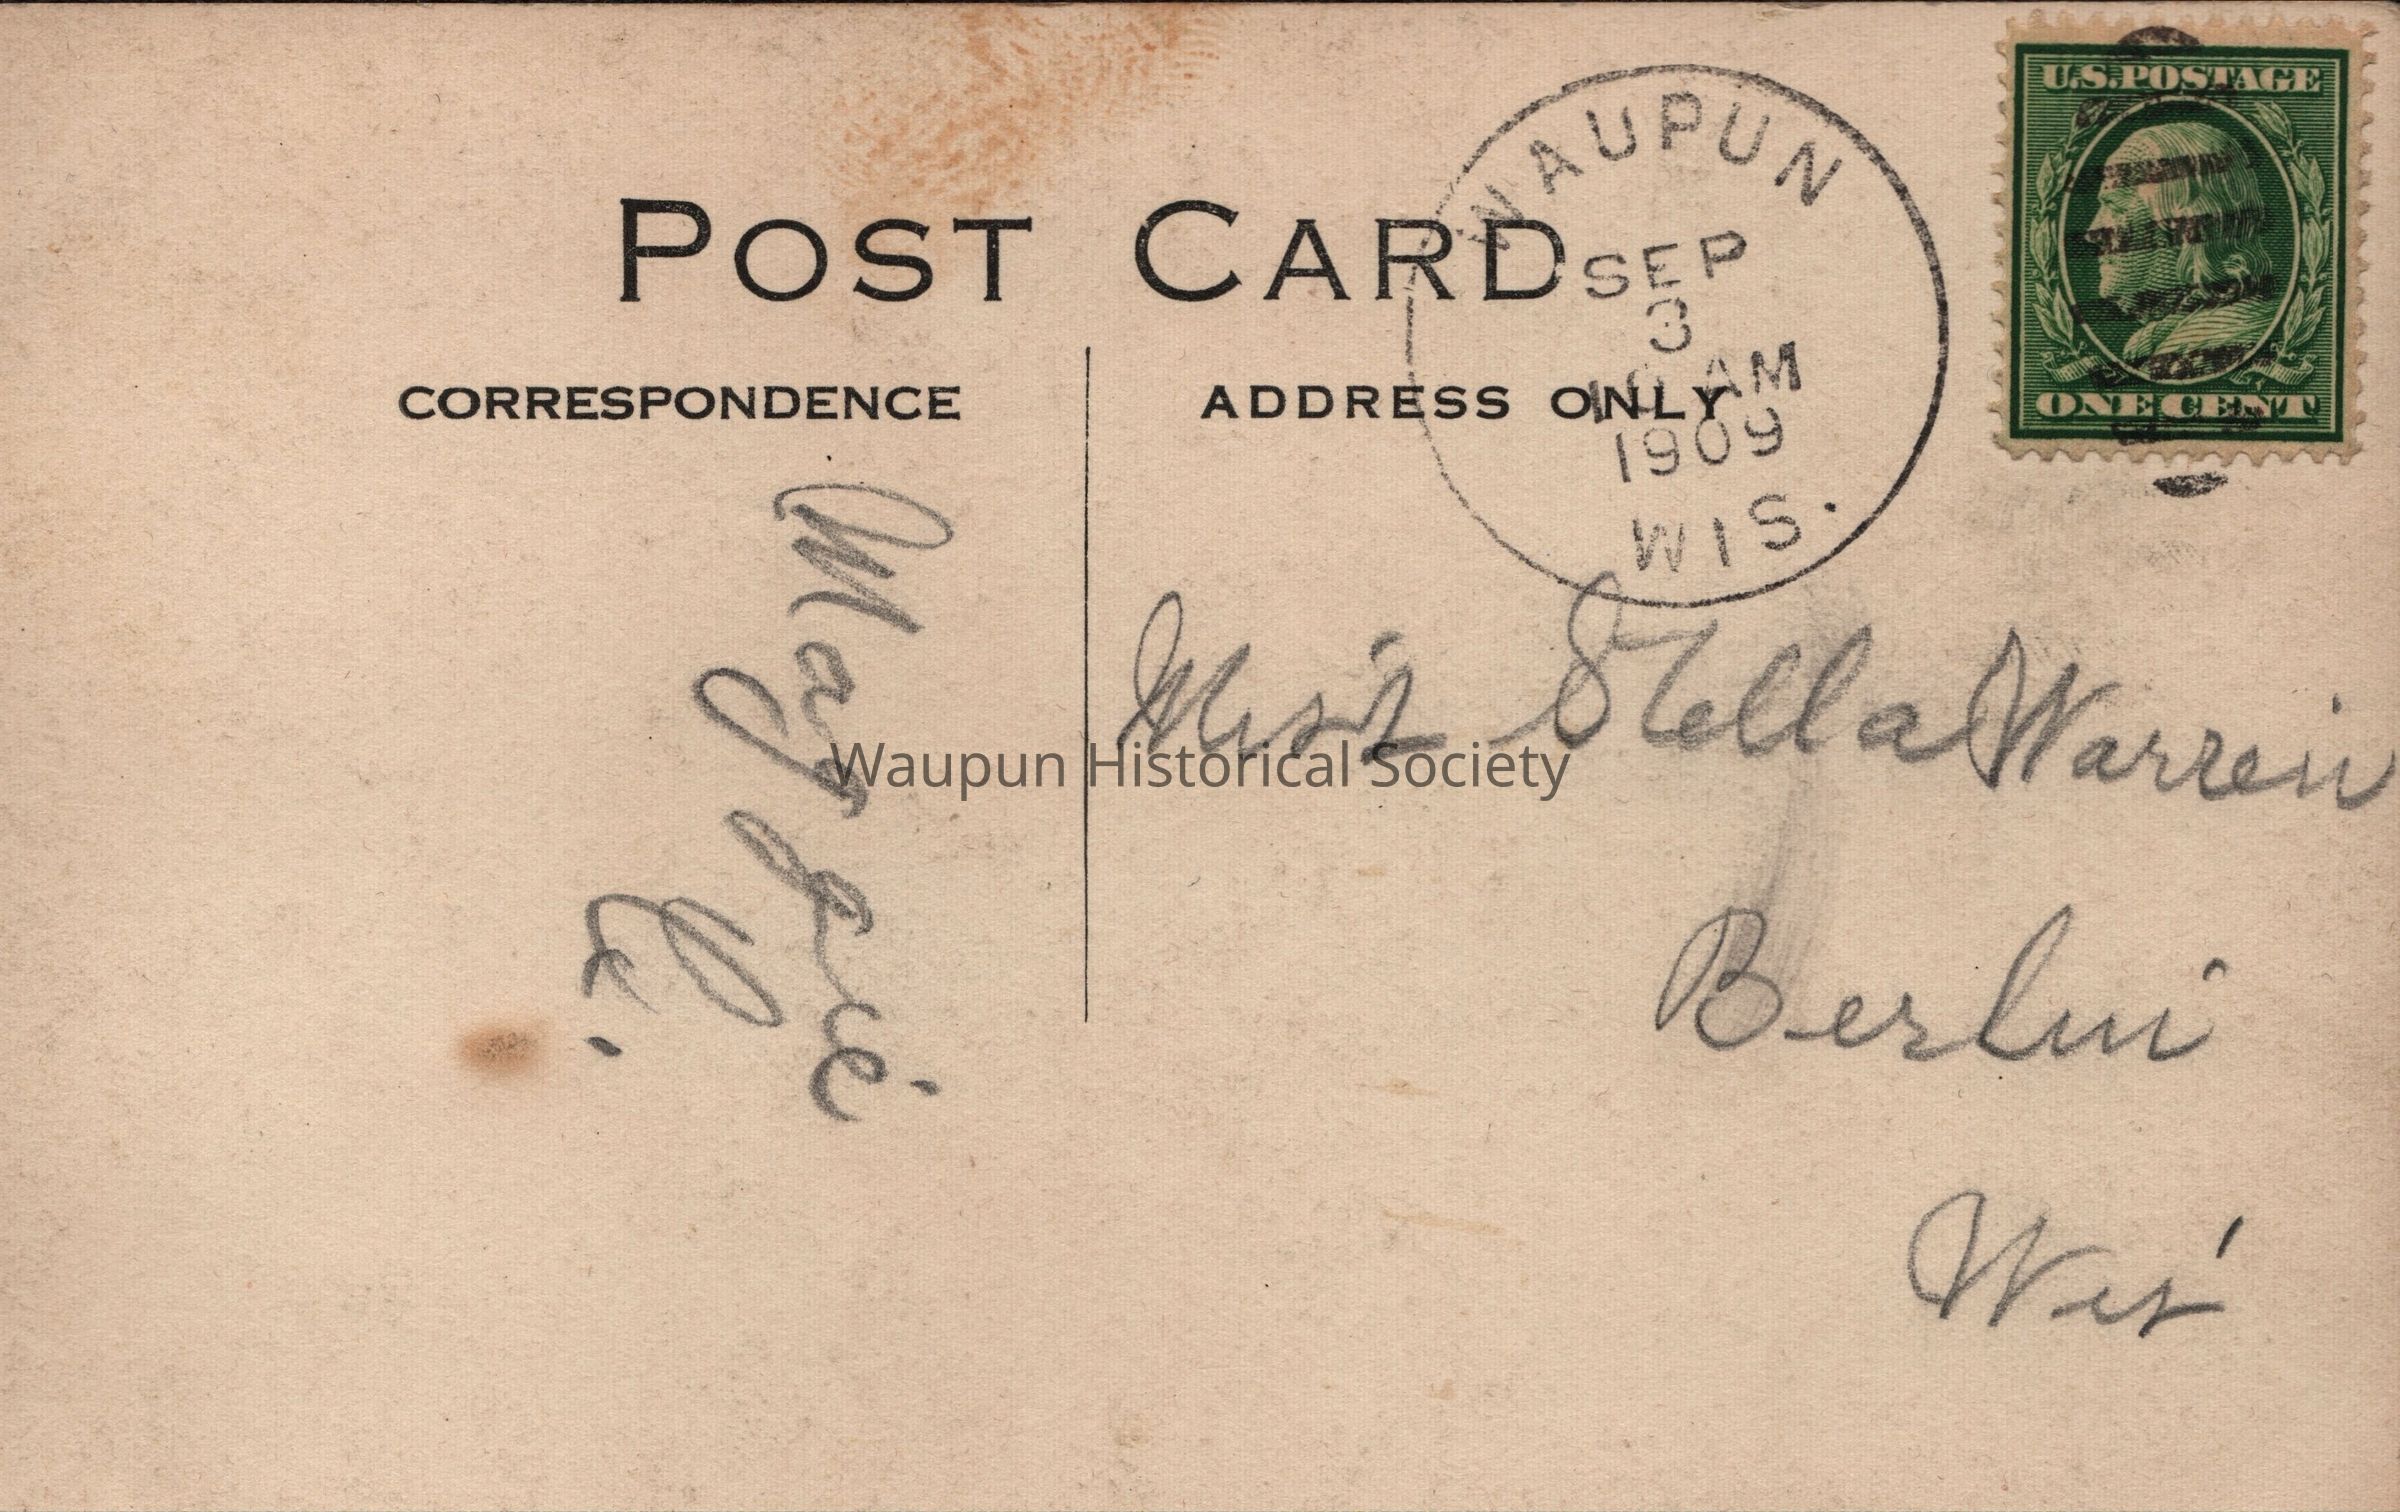 POST CARD
CORRESPONDENCE
ADDRESS ONLY
WAUPUN
SEP
3
AM
1909
WIS.
U.S.POSTAGE
ONE CENT
Maggie
Miss Stella Warren
Berlin
Wis
Waupun Historical Society